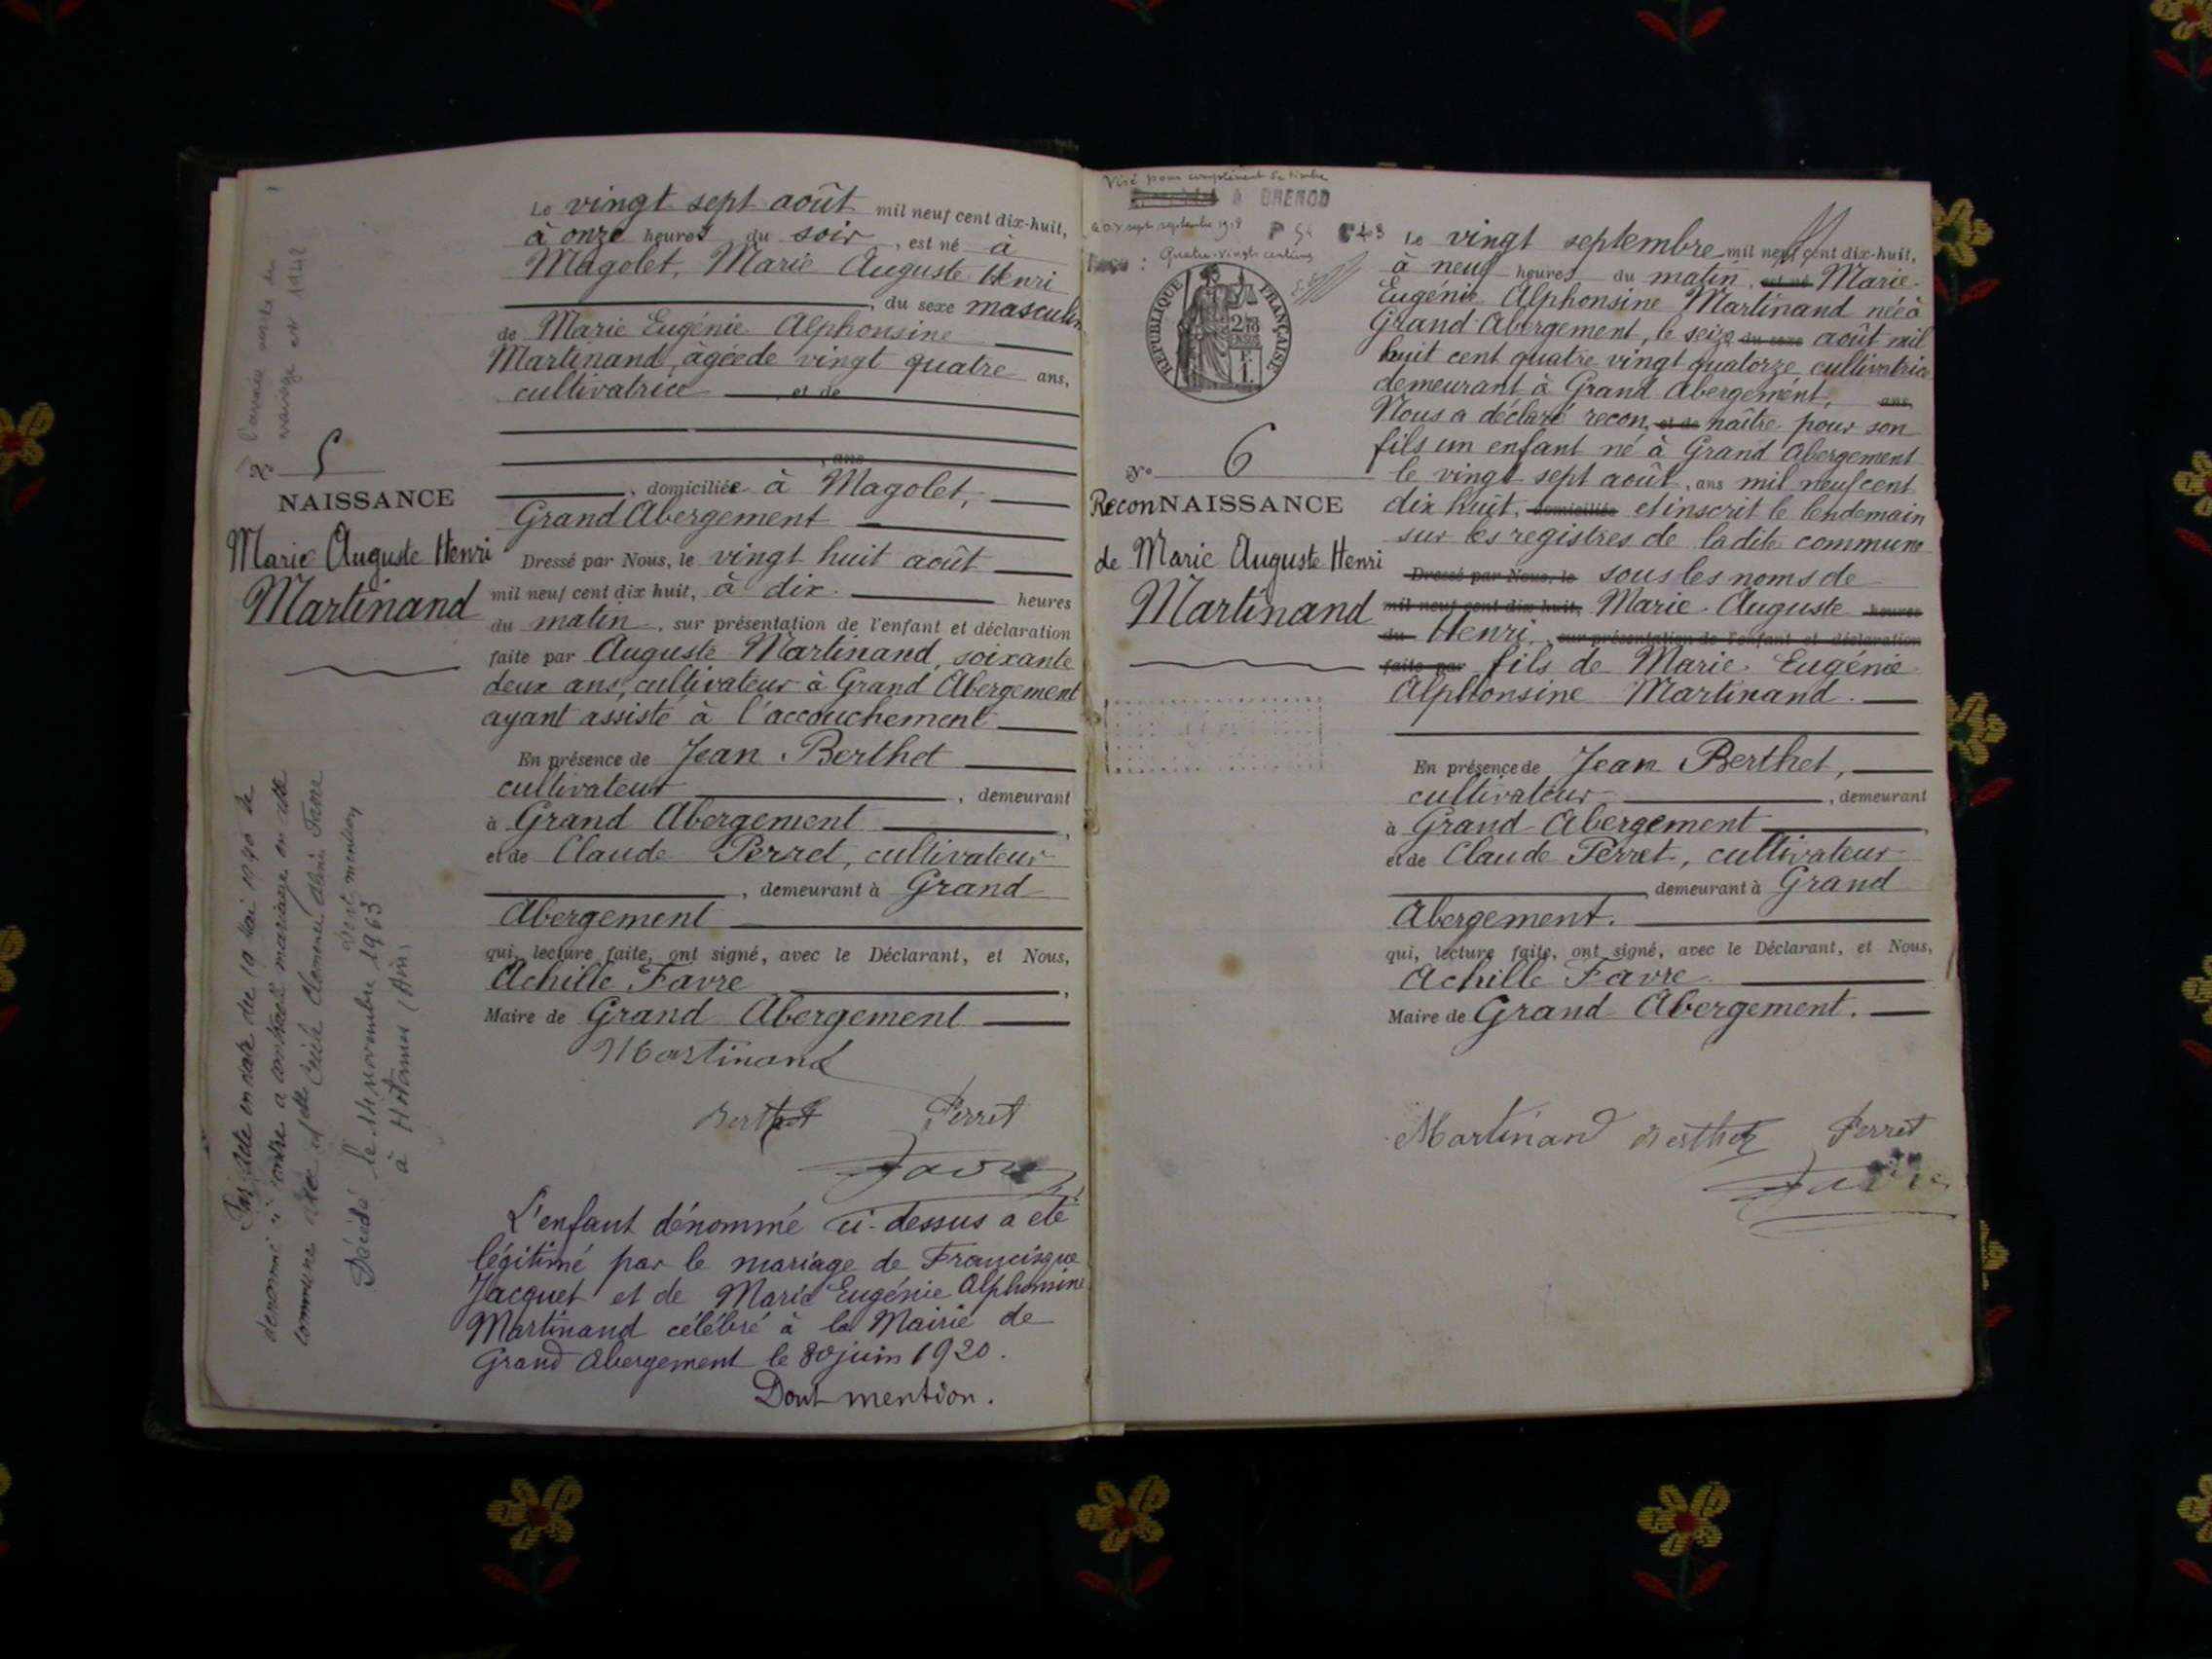 Le vingt sept août mil neuf cent dix-huit,
à onze heures du soir, est né à
Magolet, Marie Auguste Henri
, du sexe masculin
de Marie Eugénie Alphonsine
Martinand, âgée de vingt quatre ans,
cultivatrice et de
, ans
, domiciliée à Magolet,
Grand Abergement
Dressé par Nous, le vingt huit août
mil neuf cent dix huit, à dix heures
du matin, sur présentation de l'enfant et déclaration
faite par Auguste Martinand, soixante
deux ans, cultivateur à Grand Abergement
ayant assisté à l'accouchement
En présence de Jean Berthet
cultivateur, demeurant
à Grand Abergement,
et de Claude Perret, cultivateur
, demeurant à Grand
Abergement
qui, lecture faite, ont signé, avec le Déclarant, et Nous,
Achille Favre,
Maire de Grand Abergement
Martinand
Berthet Perret
Favre
L'enfant dénommé ci-dessus a été
légitimé par le mariage de Francisque
Jacquet et de Marie Eugénie Alphonsine
Martinand célébré à la Mairie de
Grand Abergement le 30 juin 1920.
Dont mention.
No 5
NAISSANCE
Marie Auguste Henri
Martinand
mariage en 1942
en date du 19 Mai 1940 le
dénommé ci contre a contracté mariage en cette
commune avec Clémence Favre
Dont mention
Décédé le 14 novembre 1963
à Hotonnes (Ain)
Visé pour complément de timbre
à BRENOD
septembre 1918
Quatre-vingt centimes
RÉPUBLIQUE FRANÇAISE
No 6
ReconNAISSANCE
de Marie Auguste Henri
Martinand
Le vingt septembre mil neuf cent dix-huit,
à neuf heures du matin, est né Marie
Eugénie Alphonsine Martinand née à
Grand Abergement, le seize du sexe août mil
huit cent quatre vingt quatorze cultivatrice
demeurant à Grand Abergement, ans,
Nous a déclaré recon, et de naître pour son
fils un enfant né à Grand Abergement
le vingt sept août, ans mil neuf cent
dix huit, domiciliée et inscrit le lendemain
sur les registres de la dite commune
Dressé par Nous, le sous les noms de
mil neuf cent dix huit, Marie Auguste heures
du Henri, sur présentation de l'enfant et déclaration
faite par fils de Marie Eugénie
Alphonsine Martinand.
En présence de Jean Berthet,
cultivateur, demeurant
à Grand Abergement,
et de Claude Perret, cultivateur
demeurant à Grand
Abergement.
qui, lecture faite, ont signé, avec le Déclarant, et Nous,
Achille Favre
Maire de Grand Abergement.
Martinand Berthet Perret
Favre